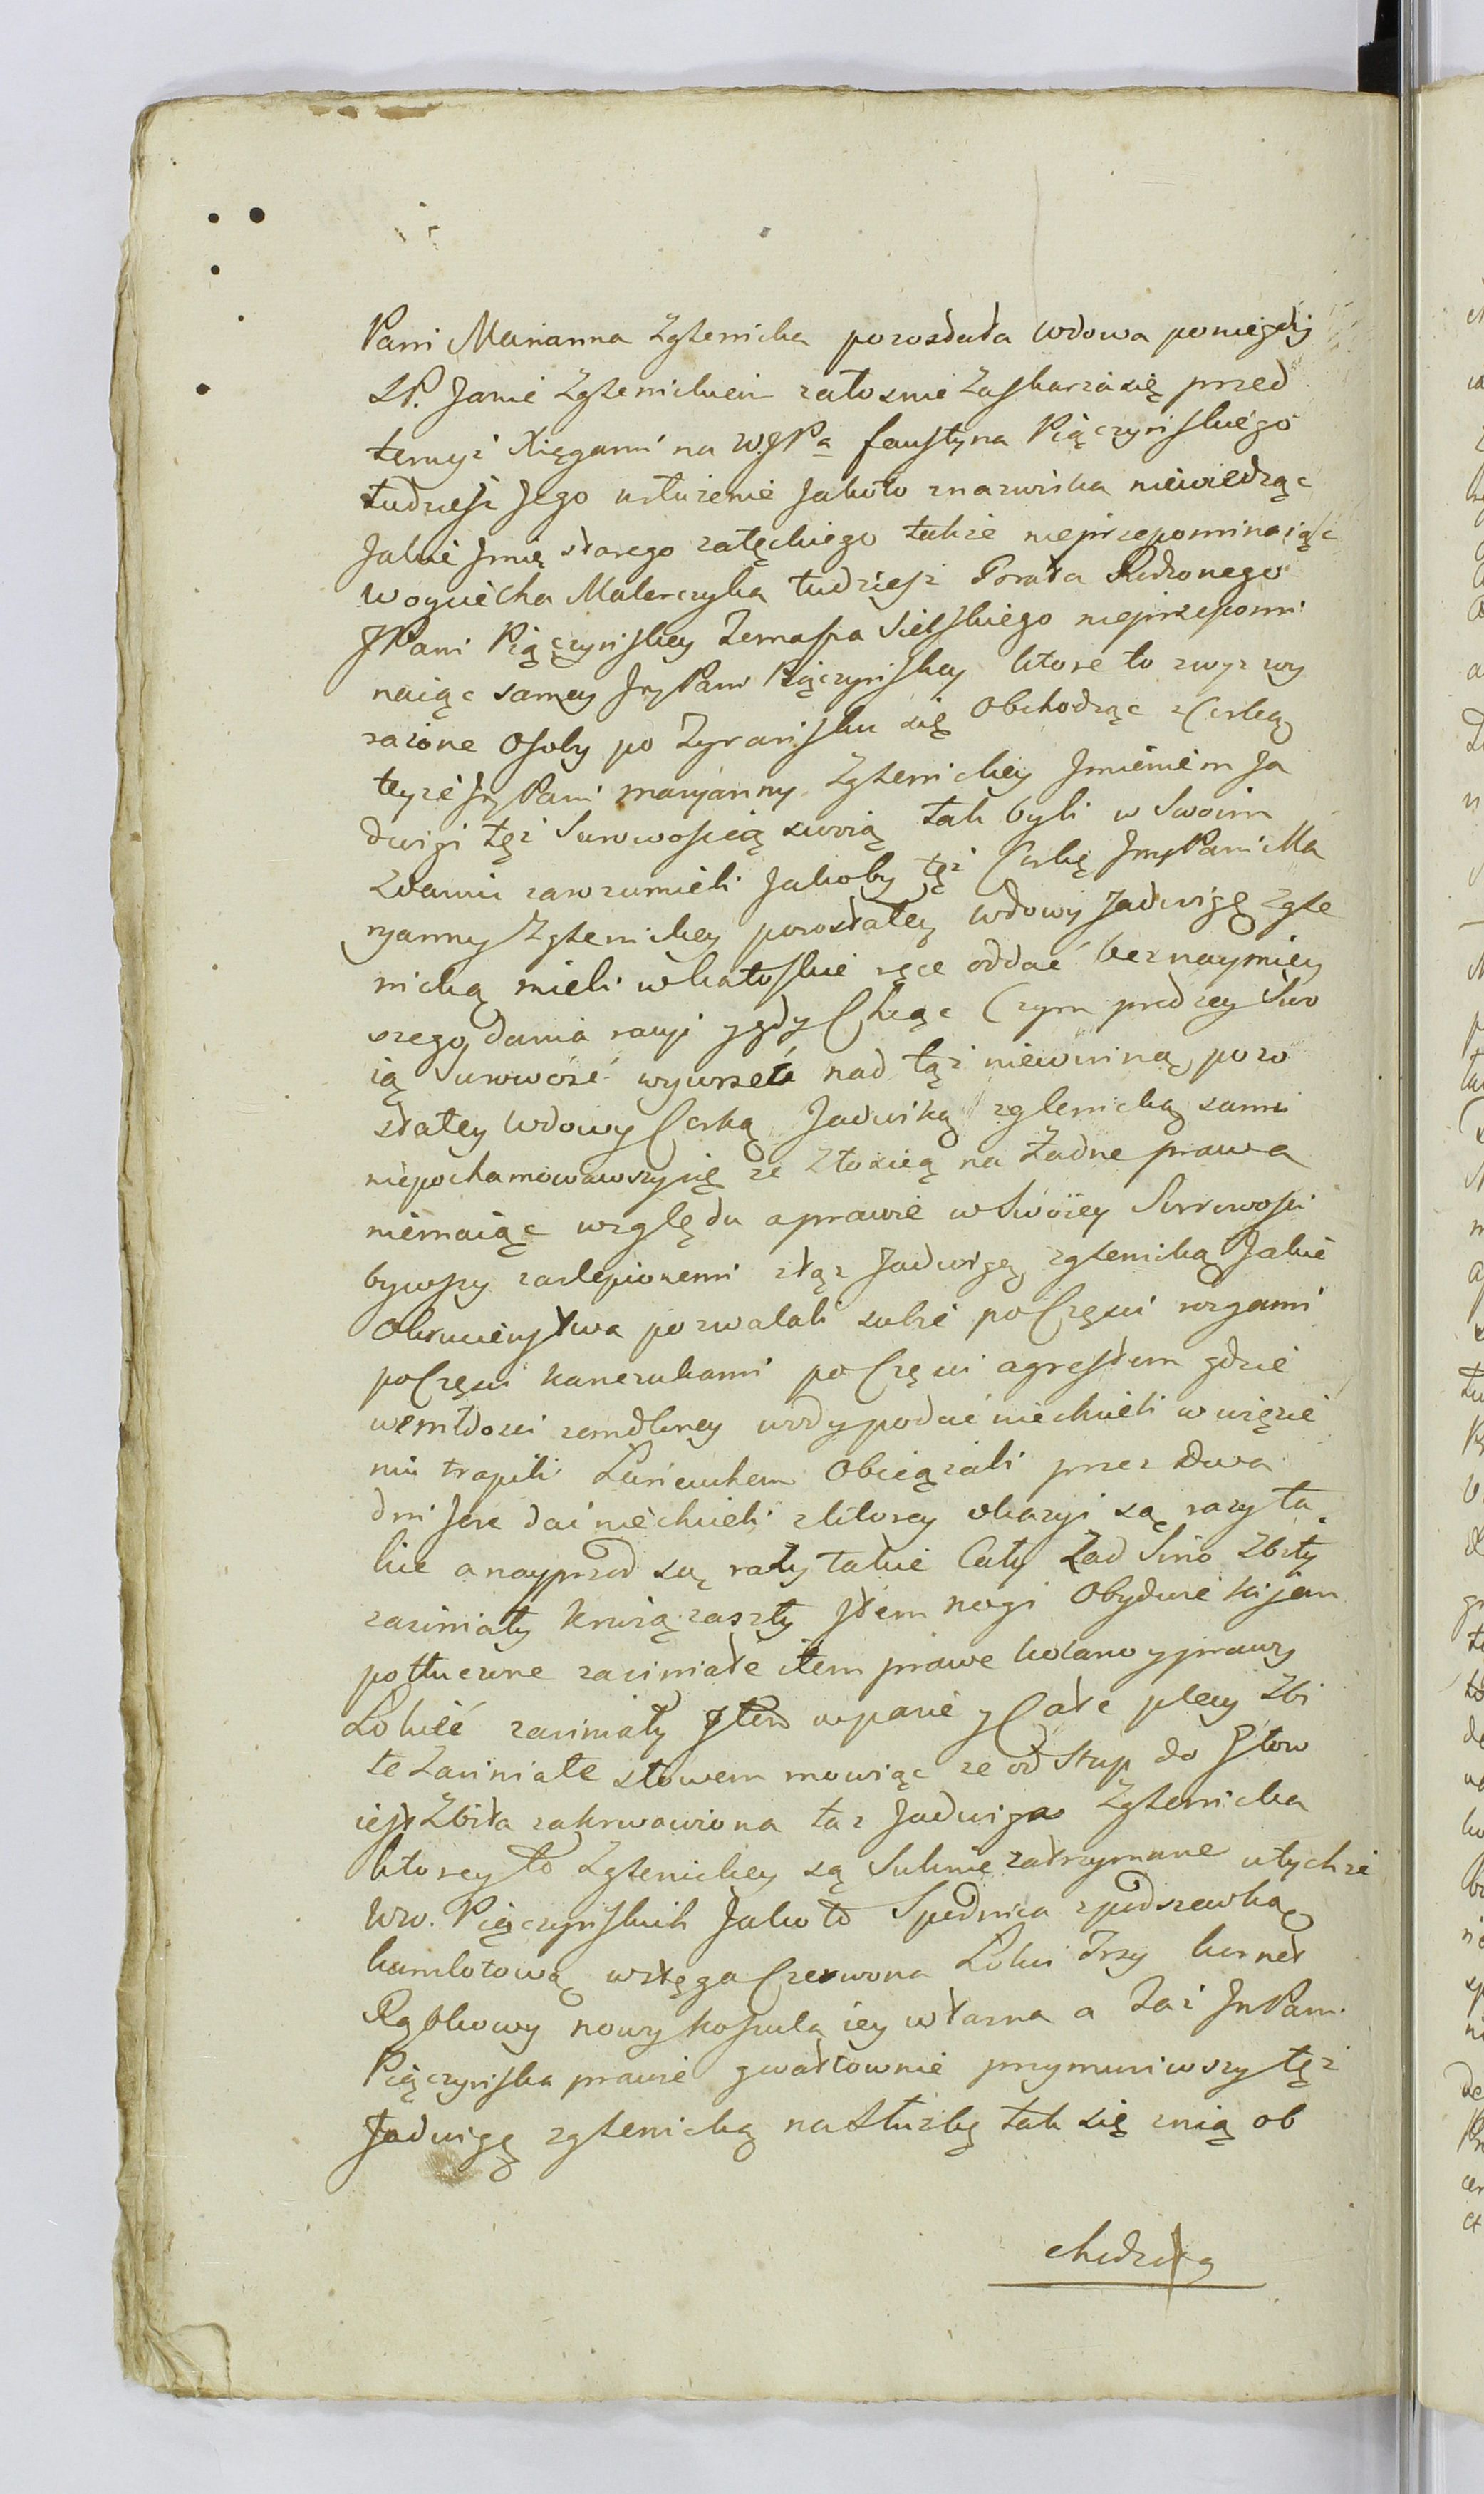 Pani Marianna Zglenicka pozostała wdowa poniegdy
SP. Janie Zglenickiem załosnie Zaskarza się przed
temyż Xięgami na W.JPa faustyna Piączyńskiego
tudziesz Jego usłużenie Jakoto znazwiska niewiedząc
Jakie Jmię starego załęckiego także nieprzepominaiąc
Woyciecha Malarczyka tudziesz Brata Rodzonego
JPani Piączyńskiey Tomasza Sielskiego nieprzepomi
naiąc samey Jey Pani Piączyńskiey ktore to zwyz wy
rażone Osoby po Tyrańsku się Obchodząc z Corką
teyże Jey Pani maryanny Zglenickiey Jmieniem Ja
dwigi tęż Surowością swoią tak byli w Swoim
Zdaniu zarozumieli Jakoby tęż Corkę Jmy Pani Ma
ryanny Zglenickiey pozostałey wdowy Jadwigę Zgle
nicką mieli w katoskie ręce oddać bez naymiey
szego dania racyi y gdy Chcąc Czym prędzey Swo
ią surowość wywrzeć nad tąż niewinną pozo
stałey wdowy Corką Jadwiką zglenicką sami
niepochamowawszy się ze złością na Żadne prawa
niemaiąc względu a prawie w Swoiey Surowości
bywszy zaslepionemi z tąż Jadwigą zglenicką Jakie
Okrucieństwa pozwalali sobie po Części rozgami
po Części kanczukami po Części agrestem gdzie
w emdłości zemdloney wody podać niechcieli w więzie
niu trapili Łańcuchem Obciążali przez Dwa
dni Jeść dać niechcieli z ktorey okazyi są razy ta
kie a nayprzod są razy takie Cały Zad Sino Zbity
zasiniały krwią zaszły Jtem nogi Obydwie kijem
potłuczone zasiniałe item prawe kolano y prawy
Łokieć zasiniały Jtem w pasie y Całe plecy Zbi
te Zasiniałe słowem mowiąc ze od Stup do Głow
iest Zbita zakrwawiona taż Jadwiga Zglenicka
ktorey to Zglenickiey są Suknie zatrzymane u tychże
WW. Piączyńskich Jako to Spodnica z podszewką
kamlotową wstęga Czerwona Łokci Trzy kornet
Rąbkowy nowy koszula iey własna a Taż Jm Pani
Piączyńska prawie gwałtownie przymusiwszy tęż
Jadwigę zglenicką na Służbę tak się znią ob
chodziła